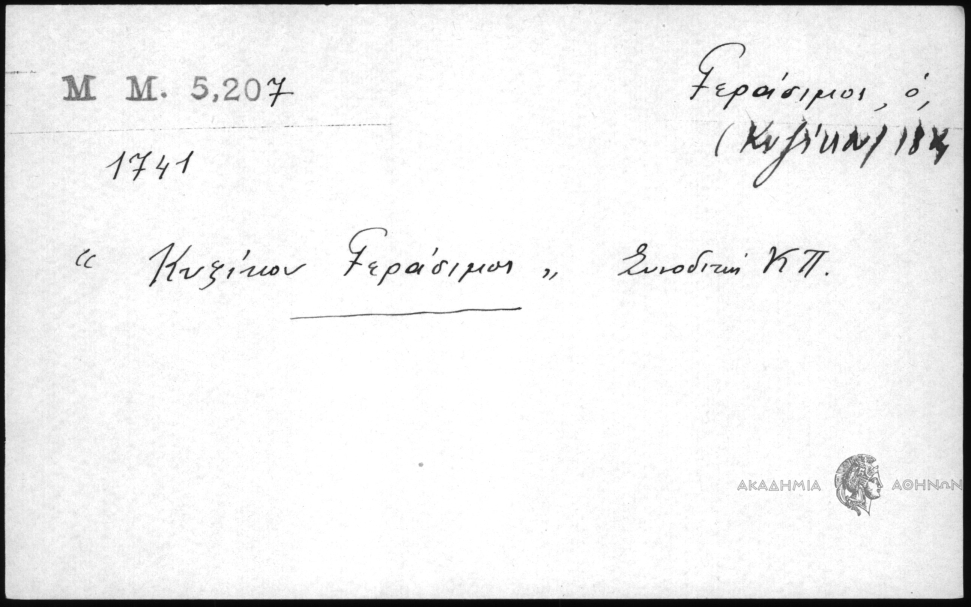 M M. 5,207
Γεράσιμος, ὁ,
(Κυζίκου) 18
1741
“ Κυζίκου Γεράσιμος „ Συνοδική ΚΠ.
ΑΚΑΔΗΜΙΑ ΑΘΗΝΩΝ